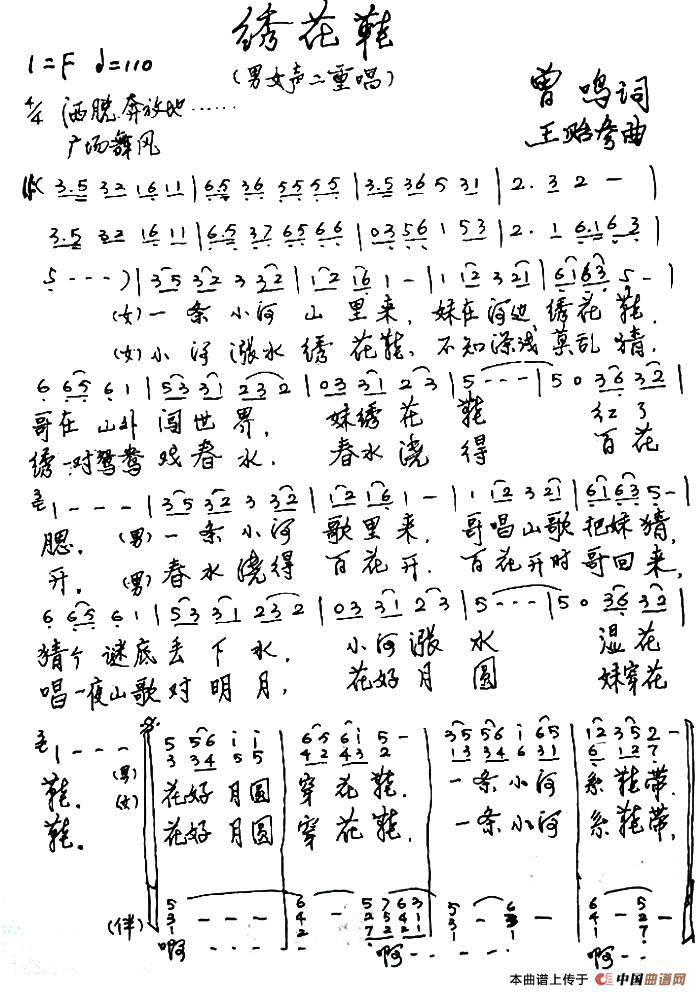 绣花鞋
1=F ♩=110
(男女声二重唱)
4/4 洒脱.奔放地……
广场舞风
曾鸣词
王贻彦曲
3.5 32 16 11 | 6.5 36 55 55 | 3.5 36 5 31 | 2. 3 2 — |
3.5 32 16 11 | 6.5 37 65 66 | 03 56 1 53 | 2. 1 6.1 63 |
5 - - - ) | 35 32 3 32 | 12 16 1 - | 1 12 3 21 | 61 63 5 - |
(女)一条小河山里来，妹在河边绣花鞋，
(女)小河涨水绣花鞋，不知深浅莫乱猜，
6 65 6 1 | 53 31 23 2 | 03 31 2 3 | 5 - - - | 5 0 36 32 |
哥在山外闯世界，妹绣花鞋红了
绣一对鸳鸯戏春水，春水浇得百花
1 - - - | 35 32 3 32 | 12 16 1 - | 1 12 3 21 | 61 63 5 - |
腮。(男)一条小河歌里来，哥唱山歌把妹猜，
开。(男)春水浇得百花开，百花开时哥回来，
6 65 6 1 | 53 31 23 2 | 03 31 2 3 | 5 - - - | 5 0 36 32 |
猜个谜底丢下水，小河涨水湿花
唱一夜山歌对明月，花好月圆妹穿花
1 - - - | 5 56 i i | 6 5 6 i 5 - | 35 56 i 65 | 12 35 2 - |
3 34 5 5 | 4 2 4 3 2 | 13 34 6 31 | 6 12 7 |
鞋。(男)花好月圆穿花鞋，一条小河系鞋带，
鞋。(女)花好月圆穿花鞋，一条小河系鞋带，
(伴)
啊 - - - 啊 - - - -
本曲谱上传于 中国曲谱网